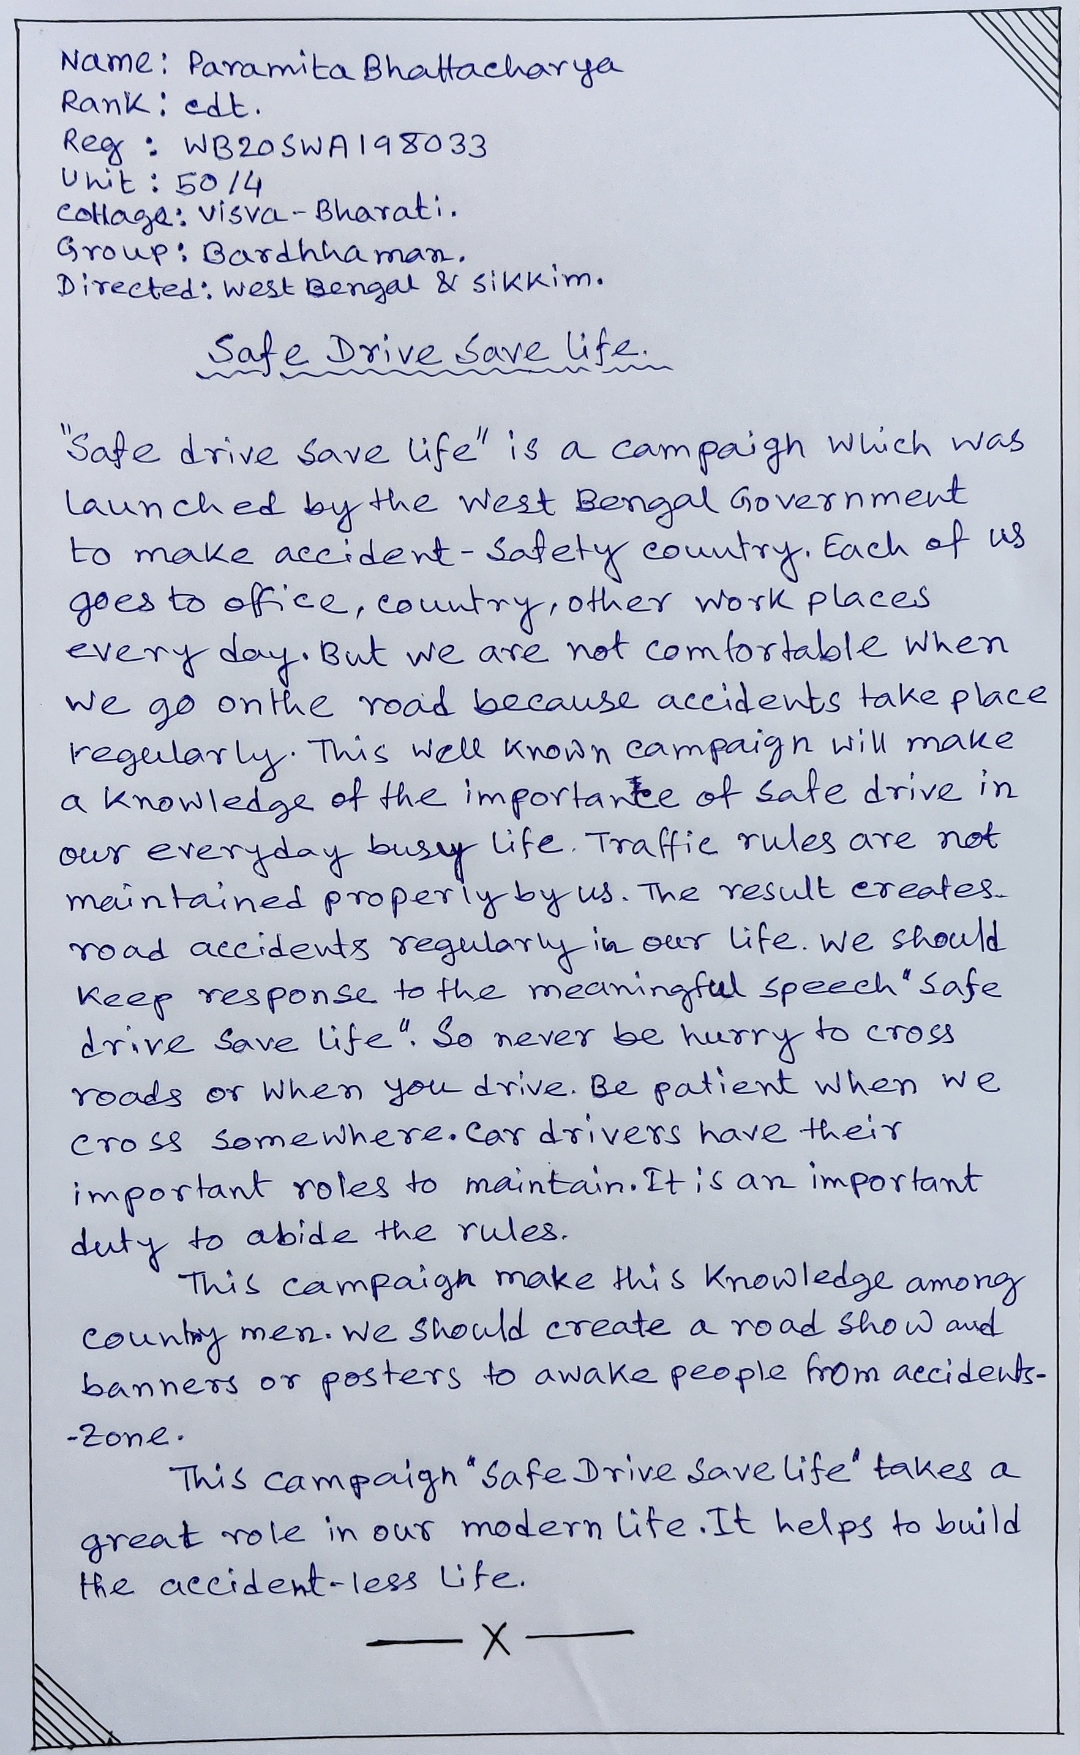 Name: Paramita Bhattacharya
Rank: cdt.
Reg : WB20SWA198033
Unit : 50/4
Collage: Visva-Bharati.
Group: Bardhhaman.
Directed: West Bengal & Sikkim.
Safe Drive Save life.
"Safe drive save life" is a campaign which was
launched by the West Bengal Government
to make accident-safety country. Each of us
goes to office, country, other work places
every day. But we are not comfortable when
we go on the road because accidents take place
regularly. This well known campaign will make
a knowledge of the importance of safe drive in
our everyday busy life. Traffic rules are not
maintained properly by us. The result creates
road accidents regularly in our life. We should
keep response to the meaningful speech "Safe
drive save life". So never be hurry to cross
roads or when you drive. Be patient when we
cross somewhere. Car drivers have their
important roles to maintain. It is an important
duty to abide the rules.
This campaign make this knowledge among
country men. We should create a road show and
banners or posters to awake people from accidents-
-zone.
This campaign "Safe Drive Save life" takes a
great role in our modern life. It helps to build
the accident-less life.
— X —